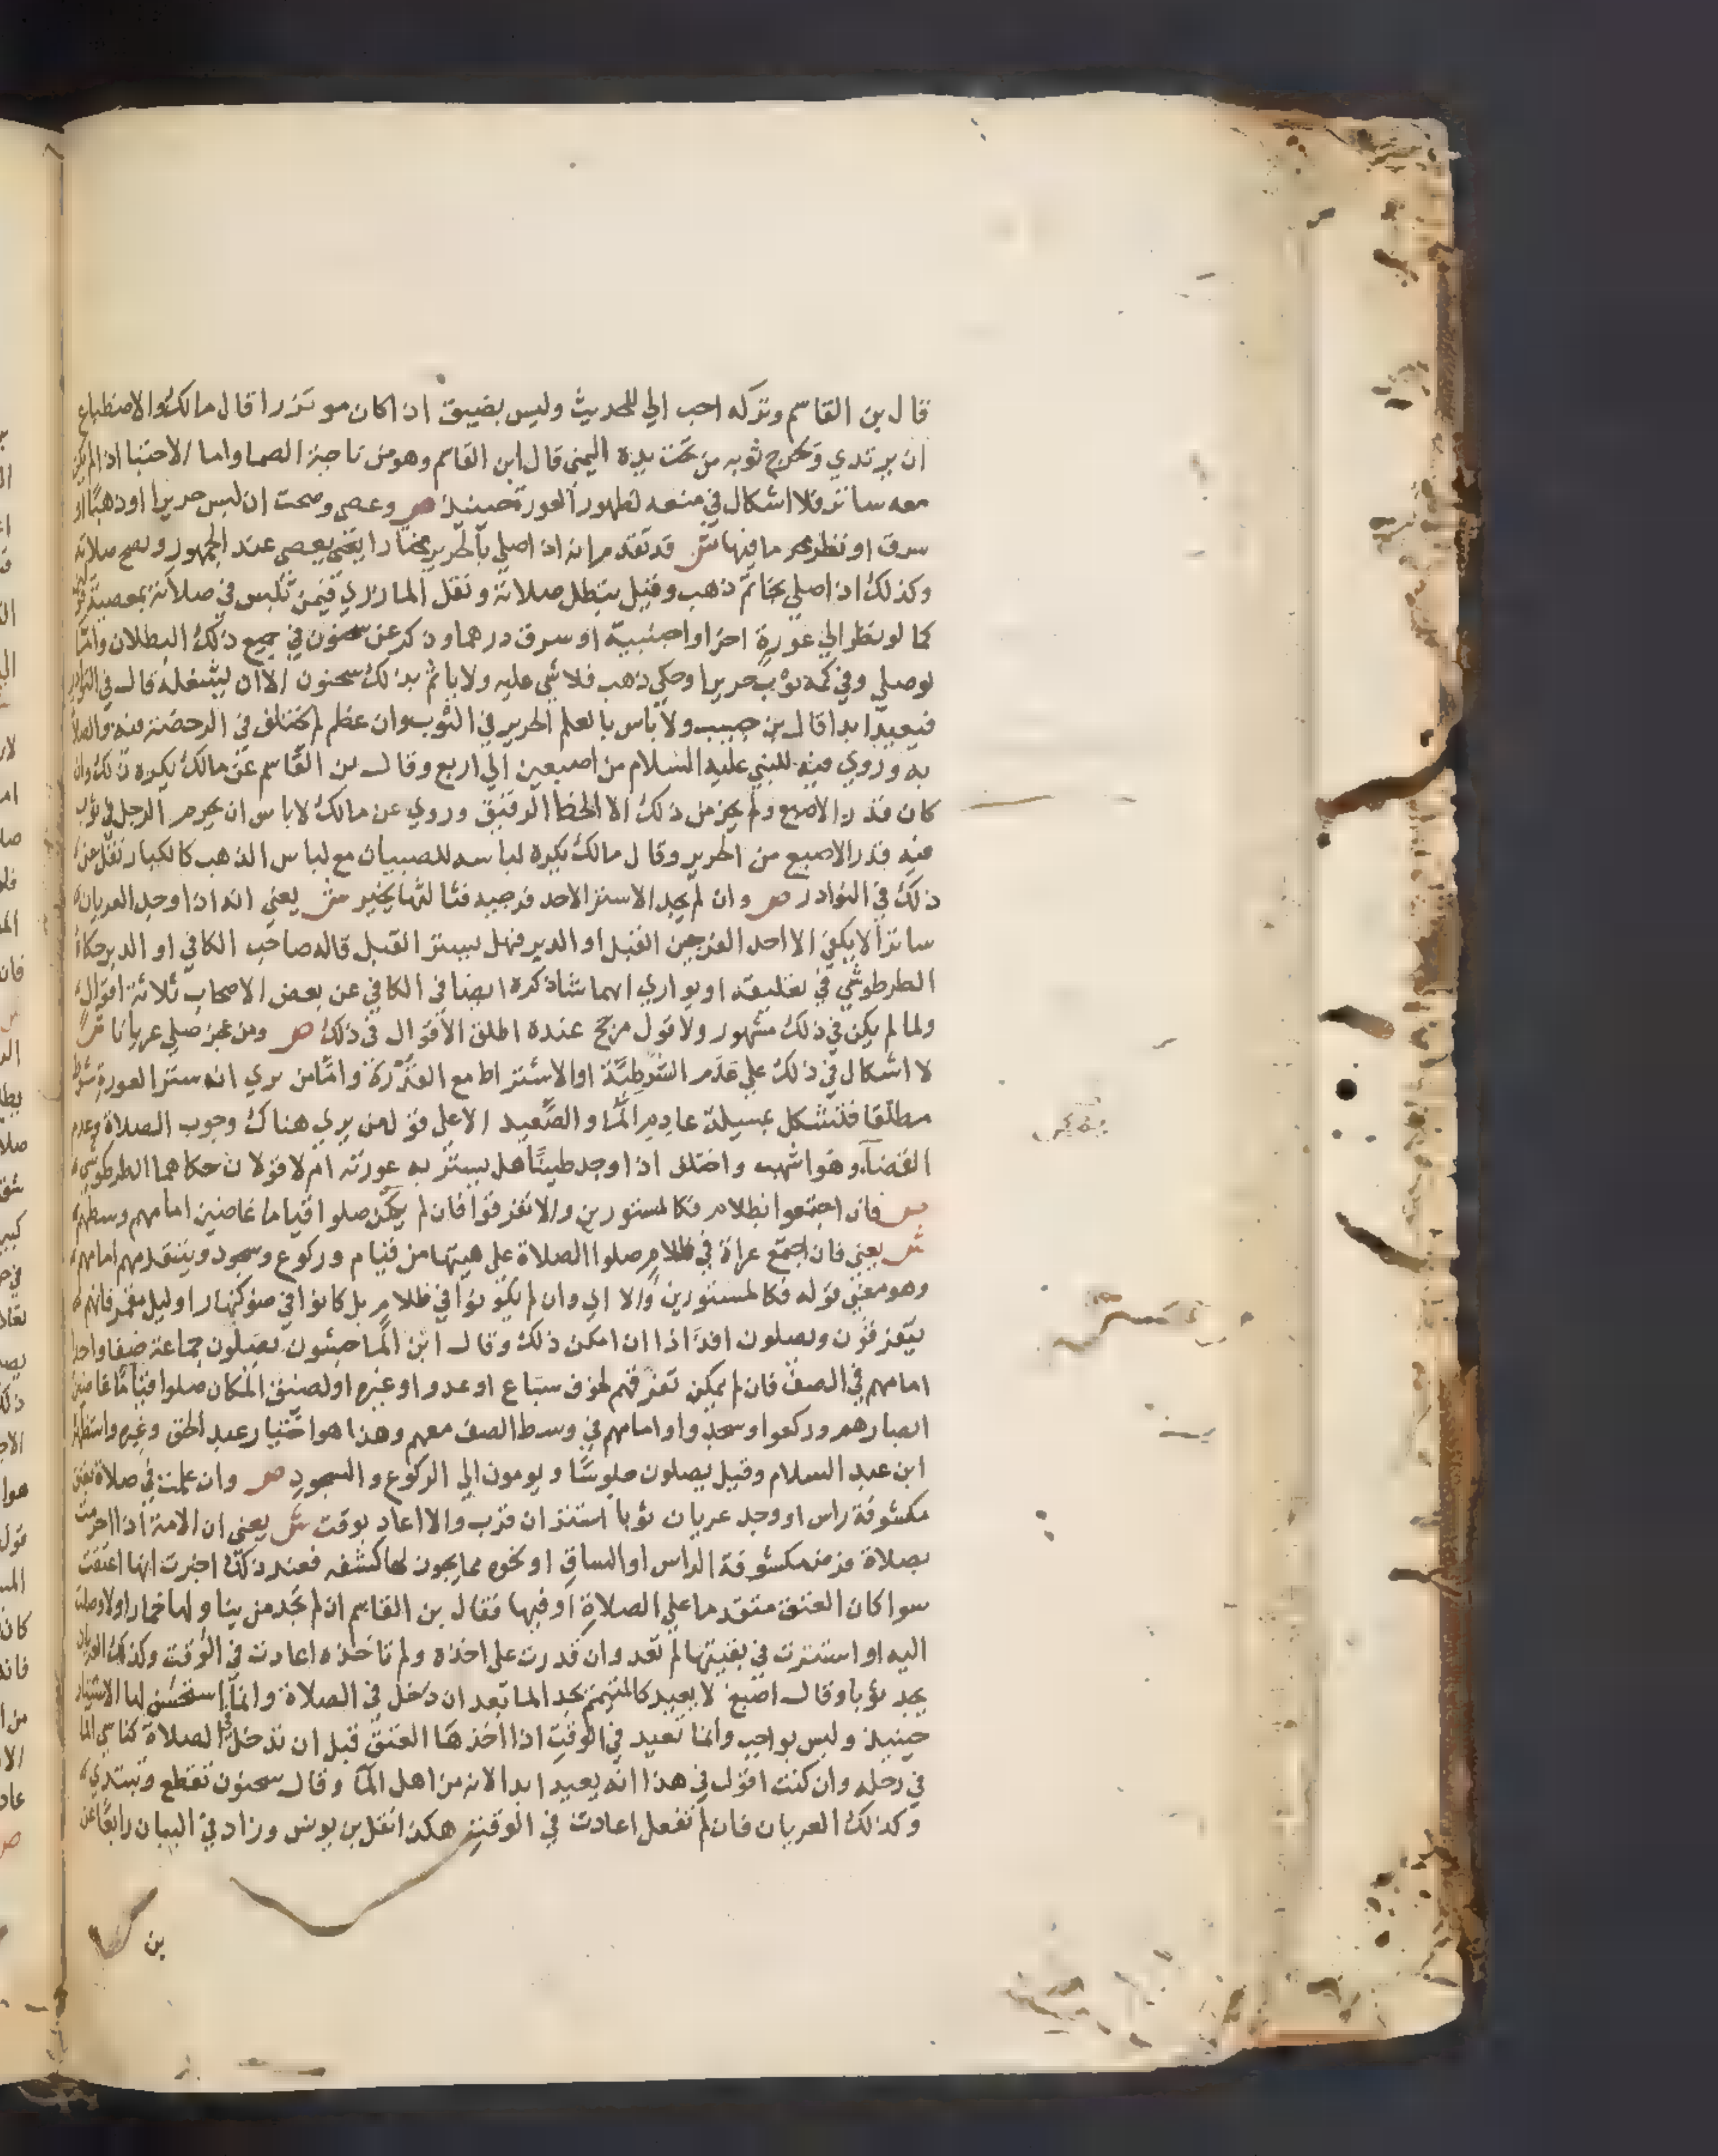 قال بن القاسم وتركه احب الي للحديث وليس بضيق اذا كان موتزرا قال مالك والاضطباع
ان يرتدي ويخرج ثوبه من تحت يده اليمني قال ابن القاسم وهو من ناحية الصما واما الاحتبا اذا لم يكن
معه ساتر فلا اشكال في منعه لظهور العورة حينيذ ص وعصي وصحت ان لبس حريرا او ذهبا او
سرق او نظر محرما فيها ش قد تقدم انه اذا صلي بالحرير مختارا يعني يعصي عند الجمهور وتصح صلاته
وكذلك اذا صلي بخاتم ذهب وقيل تبطل صلاته ونقل المازري فيمن تلبس في صلاته بمعصية
كما لو نظر الي عورة اخر او اجنبية او سرق درهما وذكر عن سحنون في جميع ذلك البطلان واما
لو صلي وفي كمه ثوب حريرا وحلي ذهب فلا شي عليه ولا ياثم بذلك سحنون الا ان يشغله قال في النوادر
فيعيد ابدا قال بن حبيب ولا باس بالعلم الحرير في الثوب وان عظم لم يختلف في الرخصة فيه والصلاة
به وروي فيه للنبي عليه السلام من اصبعين الي اربع وقال بن القاسم عن مالك يكره ذلك وان
كان قدر الاصبع ولم يجز من ذلك الا الخط الرقيق وروي عن مالك لا باس ان يحرم الرجل في ثوب
فيه قدر الاصبع من الحرير وقال مالك يكره لباسه للصبيان مع لباس الذهب كالكبار نقل عنه
ذلك في النوادر ص وان لم يجد الا ستر الاحد فرجيه فثالثها يخير ش يعني انه اذا وجد العريان
ساترا لا يكفي الا احد الفرجين القبل او الدبر فهل يستر القبل قاله صاحب الكافي او الدبر حكاه
الطرطوشي في تعليقه او يواري ايهما شا ذكره ايضا في الكافي عن بعض الاصحاب ثلاثة اقوال
ولما لم يكن في ذلك مشهور ولا قول مرجح عنده اطلق الاقوال في ذلك ص ومن عجز صلي عريانا ش
لا اشكال في ذلك علي عدم الشرطية او الاشتراط مع القدرة واما من يري انه ستر العورة شرط
مطلقا فتشكل بمسيلة عادم الما والصعيد الا علي قول من يري هناك وجوب الصلاة وعدم
القضا وهو اشهب واختلف اذا وجد طينا هل يستتر به عورته ام لا قولان حكاهما الطرطوشي
ص فان اجتمعوا بظلام فكالمستورين والا تفرقوا فان لم يمكن صلوا قياما غاضين امامهم وسطهم
ش يعني فان اجتمع عراة في ظلام صلوا الصلاة علي هيتها من قيام وركوع وسجود ويتقدمهم امامهم
وهو معني قوله فكالمستورين والا اي وان لم يكونوا في ظلام بل كانوا في ضو كنهار او ليل مقمر فانهم
يتفرقون ويصلون افذاذا ان امكن ذلك وقال ابن الماجشون يصلون جماعة صفا واحدا
امامهم في الصف فان لم يمكن تفرقهم لخوف سباع او عدو او غيره او لضيق المكان صلوا قياما غاضين
ابصارهم وركعوا وسجدوا وامامهم في وسط الصف معهم وهذا هو اختيار عبد الحق وغيره واستظهره
ابن عبد السلام وقيل يصلون جلوسا ويومون الي الركوع والسجود ص وان علمت في صلاة بعتق
مكشوفة راس او وجد عريان ثوبا استتر ان قرب والا اعاد بوقت ش يعني ان الامة اذا احرمت
بصلاة فرض مكشوفة الراس او الساق او نحوه مما يجوز لها كشفه فعند ذلك اخبرت انها اعتقت
سوا كان العتق متقدما علي الصلاة او فيها فقال بن القاسم ان لم تجد من يناولها خمارا ولا وصلت
اليه او استترت في بقيتها لم تعد وان قدرت علي اخذه ولم تاخذه اعادت في الوقت وكذلك العريان
يجد ثوبا وقال اصبغ لا يعيد كالمتيمم يجد الما بعد ان دخل في الصلاة وانما استحسن لها الاستتار
حينيذ وليس بواجب وانما تعيد في الوقت اذا اخذها العتق قبل ان تدخل في الصلاة كناسي الما
في رحله وان كنت اقول في هذا انه يعيد ابدا لانه من اهل الما وقال سحنون تقطع وتبتدي
وكذلك العريان فان لم تفعل اعادت في الوقت هكذا نقل بن يونس وزاد في البيان رابعا عن
بن